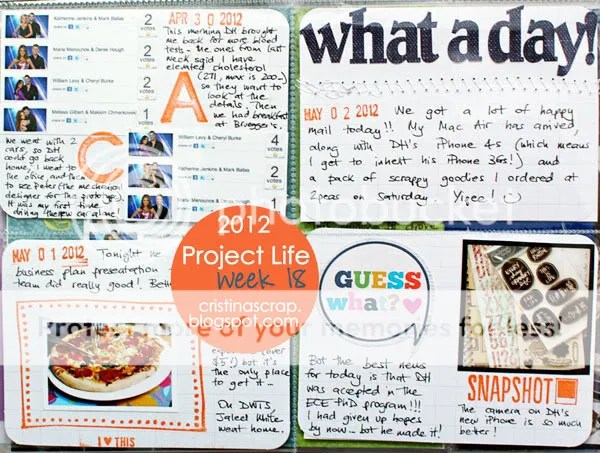 Katherine Jenkins & Mark Ballas
2
votes
Maria Menounos & Derek Hough
2
votes
William Levy & Cheryl Burke
2
votes
Melissa Gilbert & Maksim Chmerkovskiy
1
votes
APR 30 2012
This morning DH brought
me back for more blood
tests - the ones from last
week said I have
elevated cholesterol
(271, max is 200)
so they want to
look at the
details. Then
we had breakfast
at Bruegger's.
A
C
We went with 2
cars, so DH
could go back
home, I went to
the office, and then
to see Peter (the mechanical
designer for the prototype).
It was my first time
driving the new car alone!
William Levy & Cheryl Burke
4
votes
Katherine Jenkins & Mark Ballas
2
votes
Maria Menounos & Derek Hough
1
what a day!
MAY 02 2012
We got a lot of happy
mail today!! My Mac Air has arrived,
along with DH's iPhone 4s (which means
I get to inherit his iPhone 3Gs!) and
a pack of scrappy goodies I ordered at
2peas on Saturday. Yipee! :)
photobucket
Protect more of your memories for less!
2012
Project Life
Week 18
cristinascrap.
blogspot.com
MAY 01 2012
Tonight we
business plan presentation
team did really good! Both
$5!) but it's
the only place
to get it...
On DWTS
Jaleel White
went home.
I ♥ THIS
GUESS
what?♥
But the best news
for today is that DH
was accepted in the
ECE PhD program!!!
I had given up hopes
by now... but he made it!
SNAPSHOT
The camera on DH's
new iPhone is so much
better!